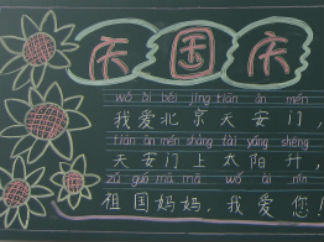 庆国庆
wǒ ài běi jīng tiān ān mén
我爱北京天安门，
tiān ān mén shàng tài yáng shēng
天安门上太阳升，
zǔ guó mā mā wǒ ài nín
祖国妈妈，我爱您！